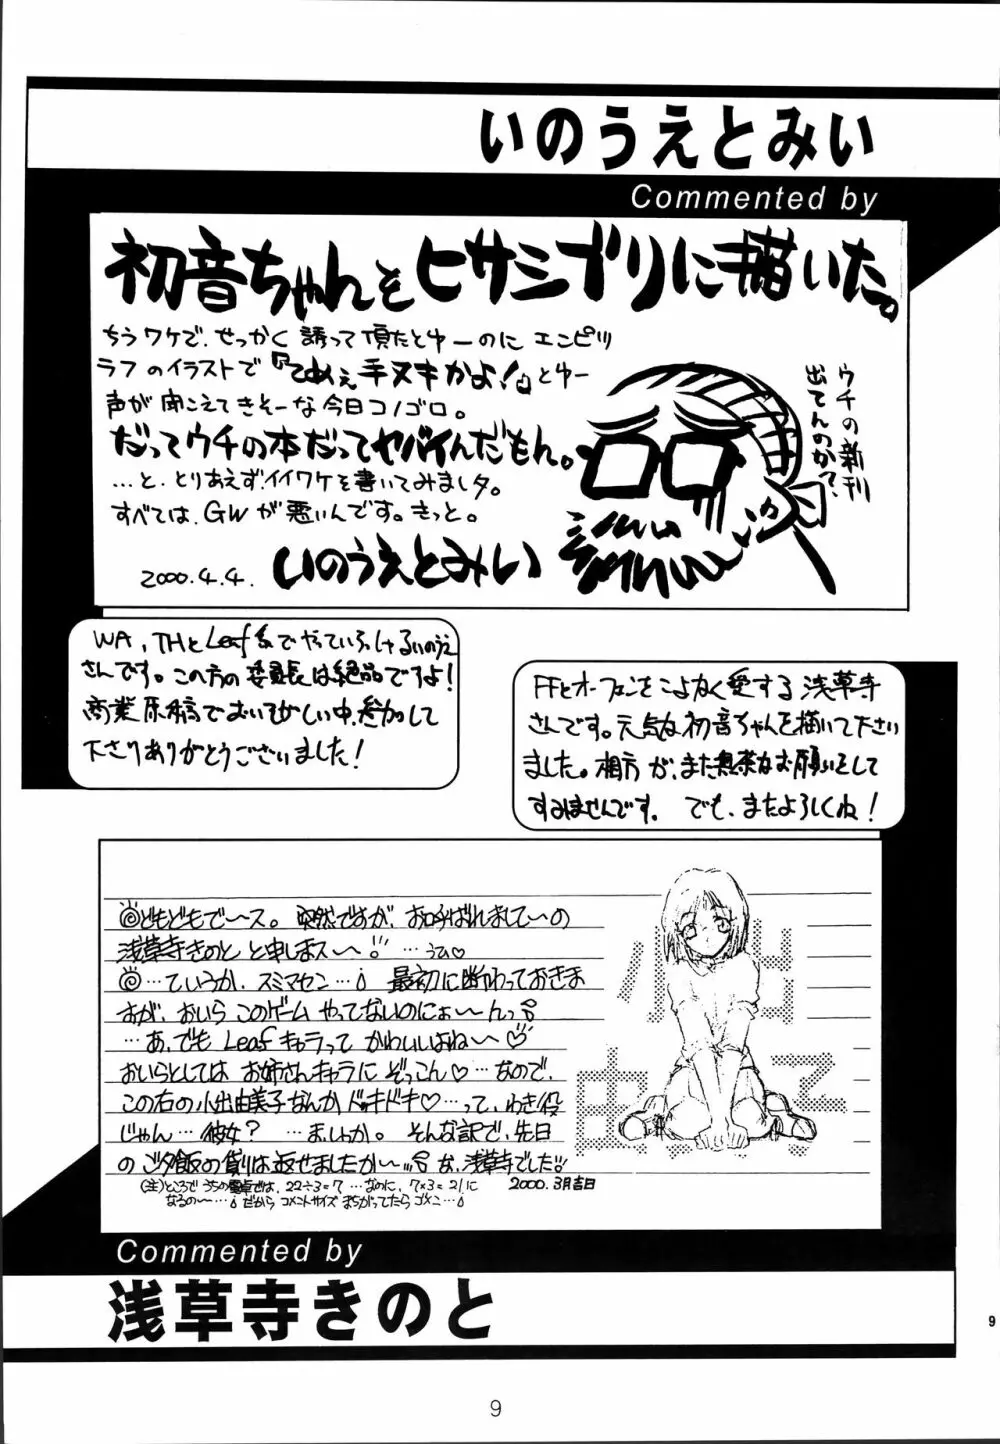 いのうえとみい
Commented by
初音ちゃんをヒサシブリに描いた。
ちうワケで、せっかく誘って頂たとゆーのにエンピツ
ラフのイラストで『てめぇ手ヌキかよ!』とゆー
声が聞こえてきそーな今日コノゴロ。
だってウチの本だってヤバイんだもん。
…と、とりあえずイイワケを書いてみましタ。
すべては、GWが悪いんです。きっと。
2000.4.4. いのうえとみい
ウチの新刊
出てんのか?
WA、THとLeaf系でやっていらっしゃるいのうえ
さんです。この方の委員長は絶品ですよ!
商業原稿でおいそがしい中、参加して
下さりありがとうございました!
FFとオーフェンをこよなく愛する浅草寺
さんです。元気な初音ちゃんを描いて下さい
ました。相方が、また無茶なお願いをして
すみませんです。でも、またよろしくね!
どもどもで〜ス。突然ですが、お呼ばれしまして〜の
浅草寺きのと と申しまス〜!! …うふ♡
…ていうか、スミマセン… 最初に断わっておきま
すが、おいら このゲーム やってないのにょ〜んっ
…あ、でも Leafキャラって かわいいよね〜♡
おいらとしては お姉さんキャラに ぞっこん♡…なので、
この右の小出由美子なんか ドッキドキ♡…って、わき役
じゃん…彼女? …ましょか。そんな訳で、先日
のご夕飯の借りは返せましたか〜…な、浅草寺でした!!
(注)ところで うちの電卓では、22÷3=7 …なのに、7×3=21に
なるの〜… だから コメントサイズ まちがってたら ゴメン…
2000.3月吉日
小出
由美子
Commented by
浅草寺きのと
9
9